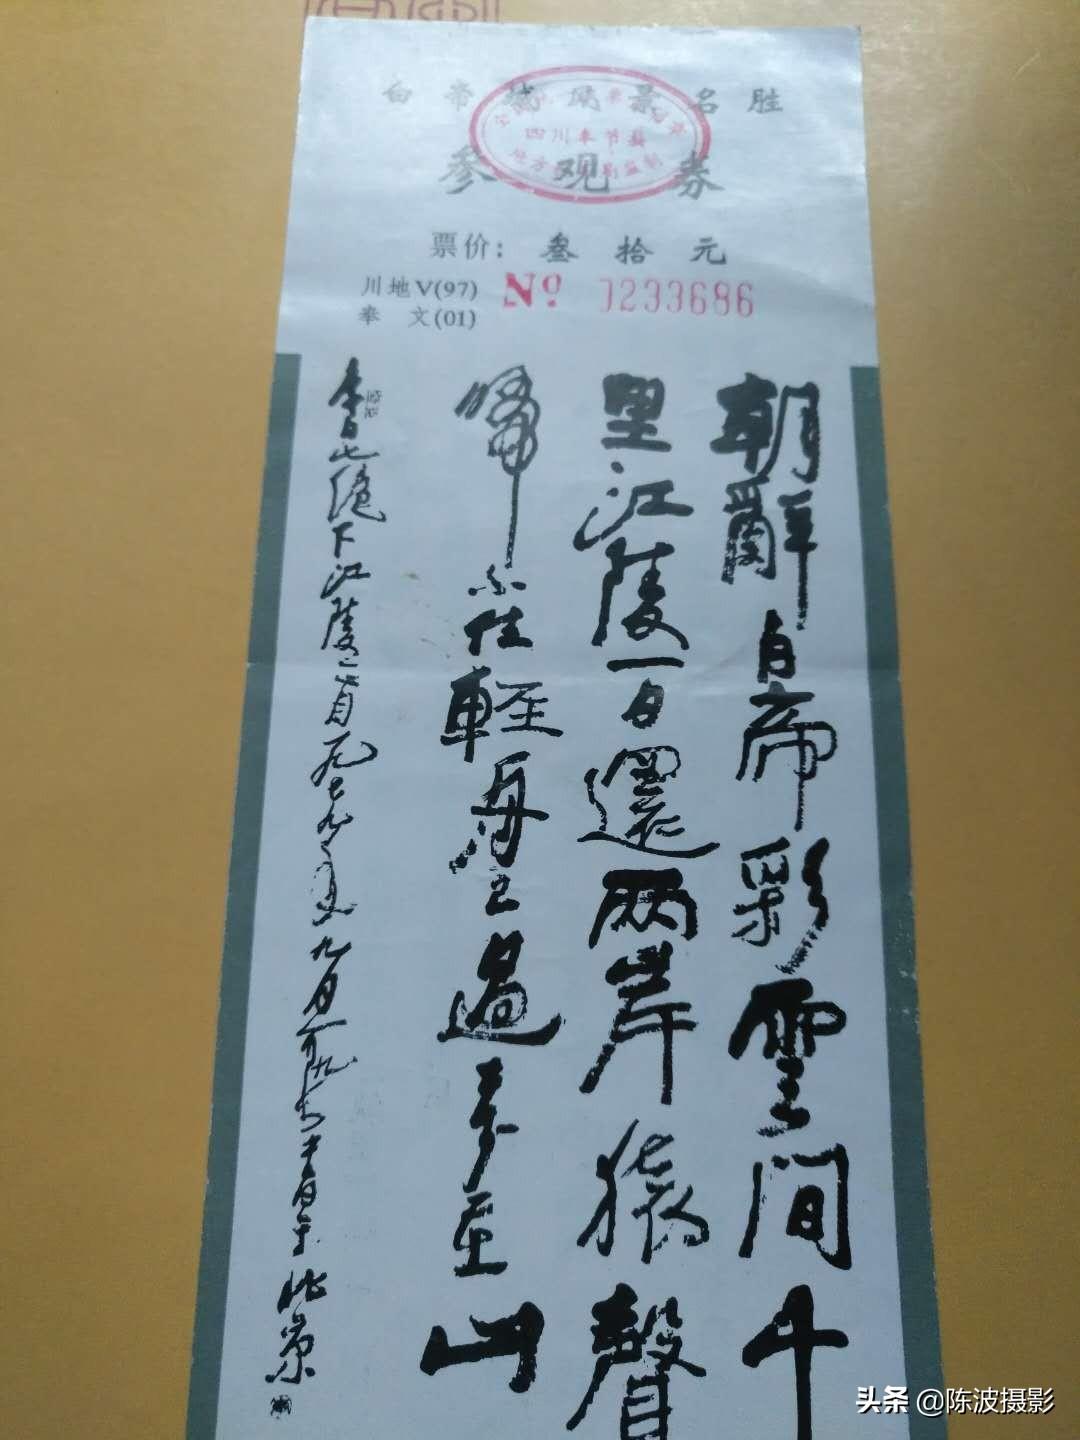 白帝城风景名胜
四川奉节县
参观券
票价：叁拾元
川地V(97)
奉 文(01)
№ 0233686
朝辭白帝彩雲間千
里江陵一日還兩岸猿聲
啼不住輕舟已過万重山
李白七绝下江陵一首一九七九年九月
北京
头条 @陈波摄影